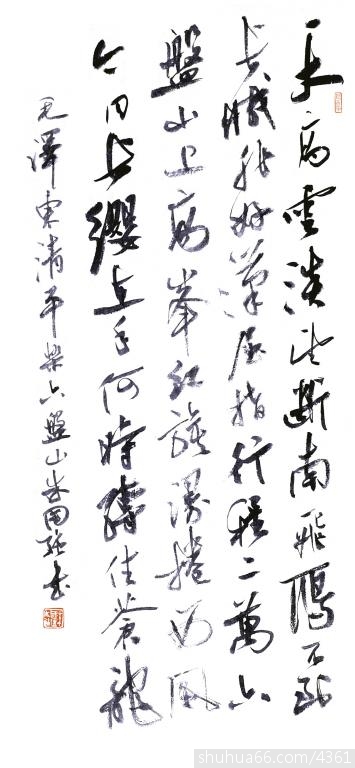 天高雲淡望斷南飛雁不到
長城非好漢屈指行程二萬六
盤山上高峰紅旗漫捲西風
今日長纓在手何時縛住蒼龍
毛澤東清平樂六盤山書
shuhua66.com/4361